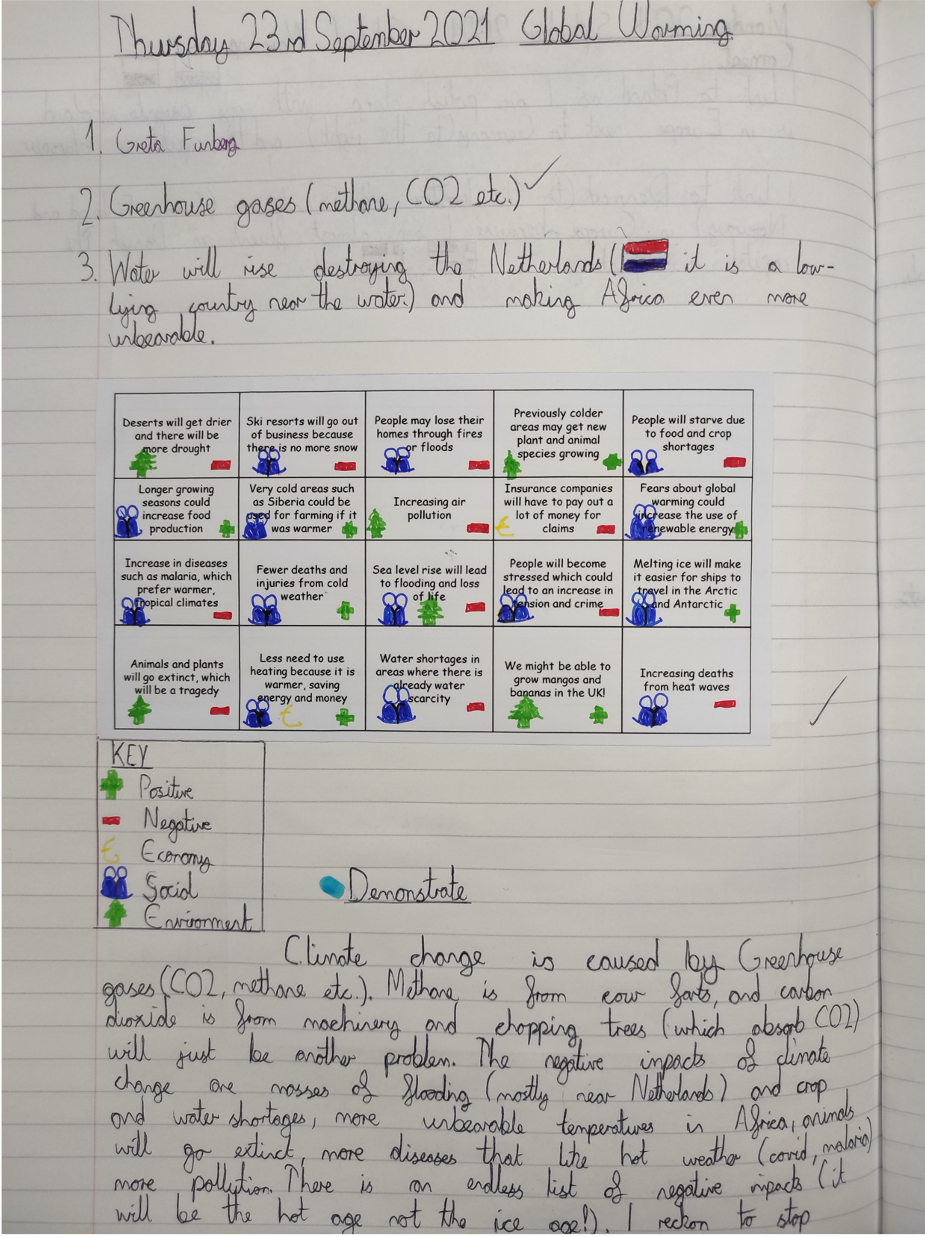 Thursday 23rd September 2021 Global Warming
1. Greta Funberg
2. Greenhouse gases (methane, CO2 etc.)
3. Water will rise destroying the Netherlands (it is a low-
lying country near the water) and making Africa even more
unbearable.
Deserts will get drier
and there will be
more drought
Ski resorts will go out
of business because
there is no more snow
People may lose their
homes through fires
or floods
Previously colder
areas may get new
plant and animal
species growing
People will starve due
to food and crop
shortages
Longer growing
seasons could
increase food
production
Very cold areas such
as Siberia could be
used for farming if it
was warmer
Increasing air
pollution
Insurance companies
will have to pay out a
lot of money for
claims
Fears about global
warming could
increase the use of
renewable energy
Increase in diseases
such as malaria, which
prefer warmer,
tropical climates
Fewer deaths and
injuries from cold
weather
Sea level rise will lead
to flooding and loss
of life
People will become
stressed which could
lead to an increase in
tension and crime
Melting ice will make
it easier for ships to
travel in the Arctic
and Antarctic
Animals and plants
will go extinct, which
will be a tragedy
Less need to use
heating because it is
warmer, saving
energy and money
Water shortages in
areas where there is
already water
scarcity
We might be able to
grow mangos and
bananas in the UK!
Increasing deaths
from heat waves
KEY
Positive
Negative
Economy
Social
Environment
Demonstrate
Climate change is caused by Greenhouse
gases (CO2, methane etc.). Methane is from cow farts, and carbon
dioxide is from machinery and chopping trees (which absorb CO2)
will just be another problem. The negative impacts of climate
change are masses of flooding (mostly near Netherlands) and crop
and water shortages, more unbearable temperatures in Africa, animals
will go extinct, more diseases that like hot weather (covid, malaria)
more pollution. There is an endless list of negative impacts (it
will be the hot age not the ice age!). I reckon to stop